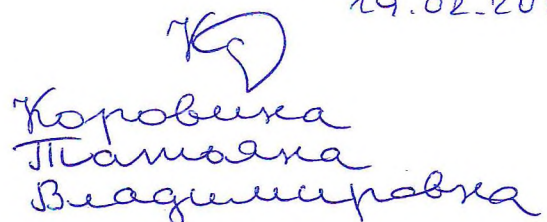 29.02.20
Коровина
Татьяна
Владимировна